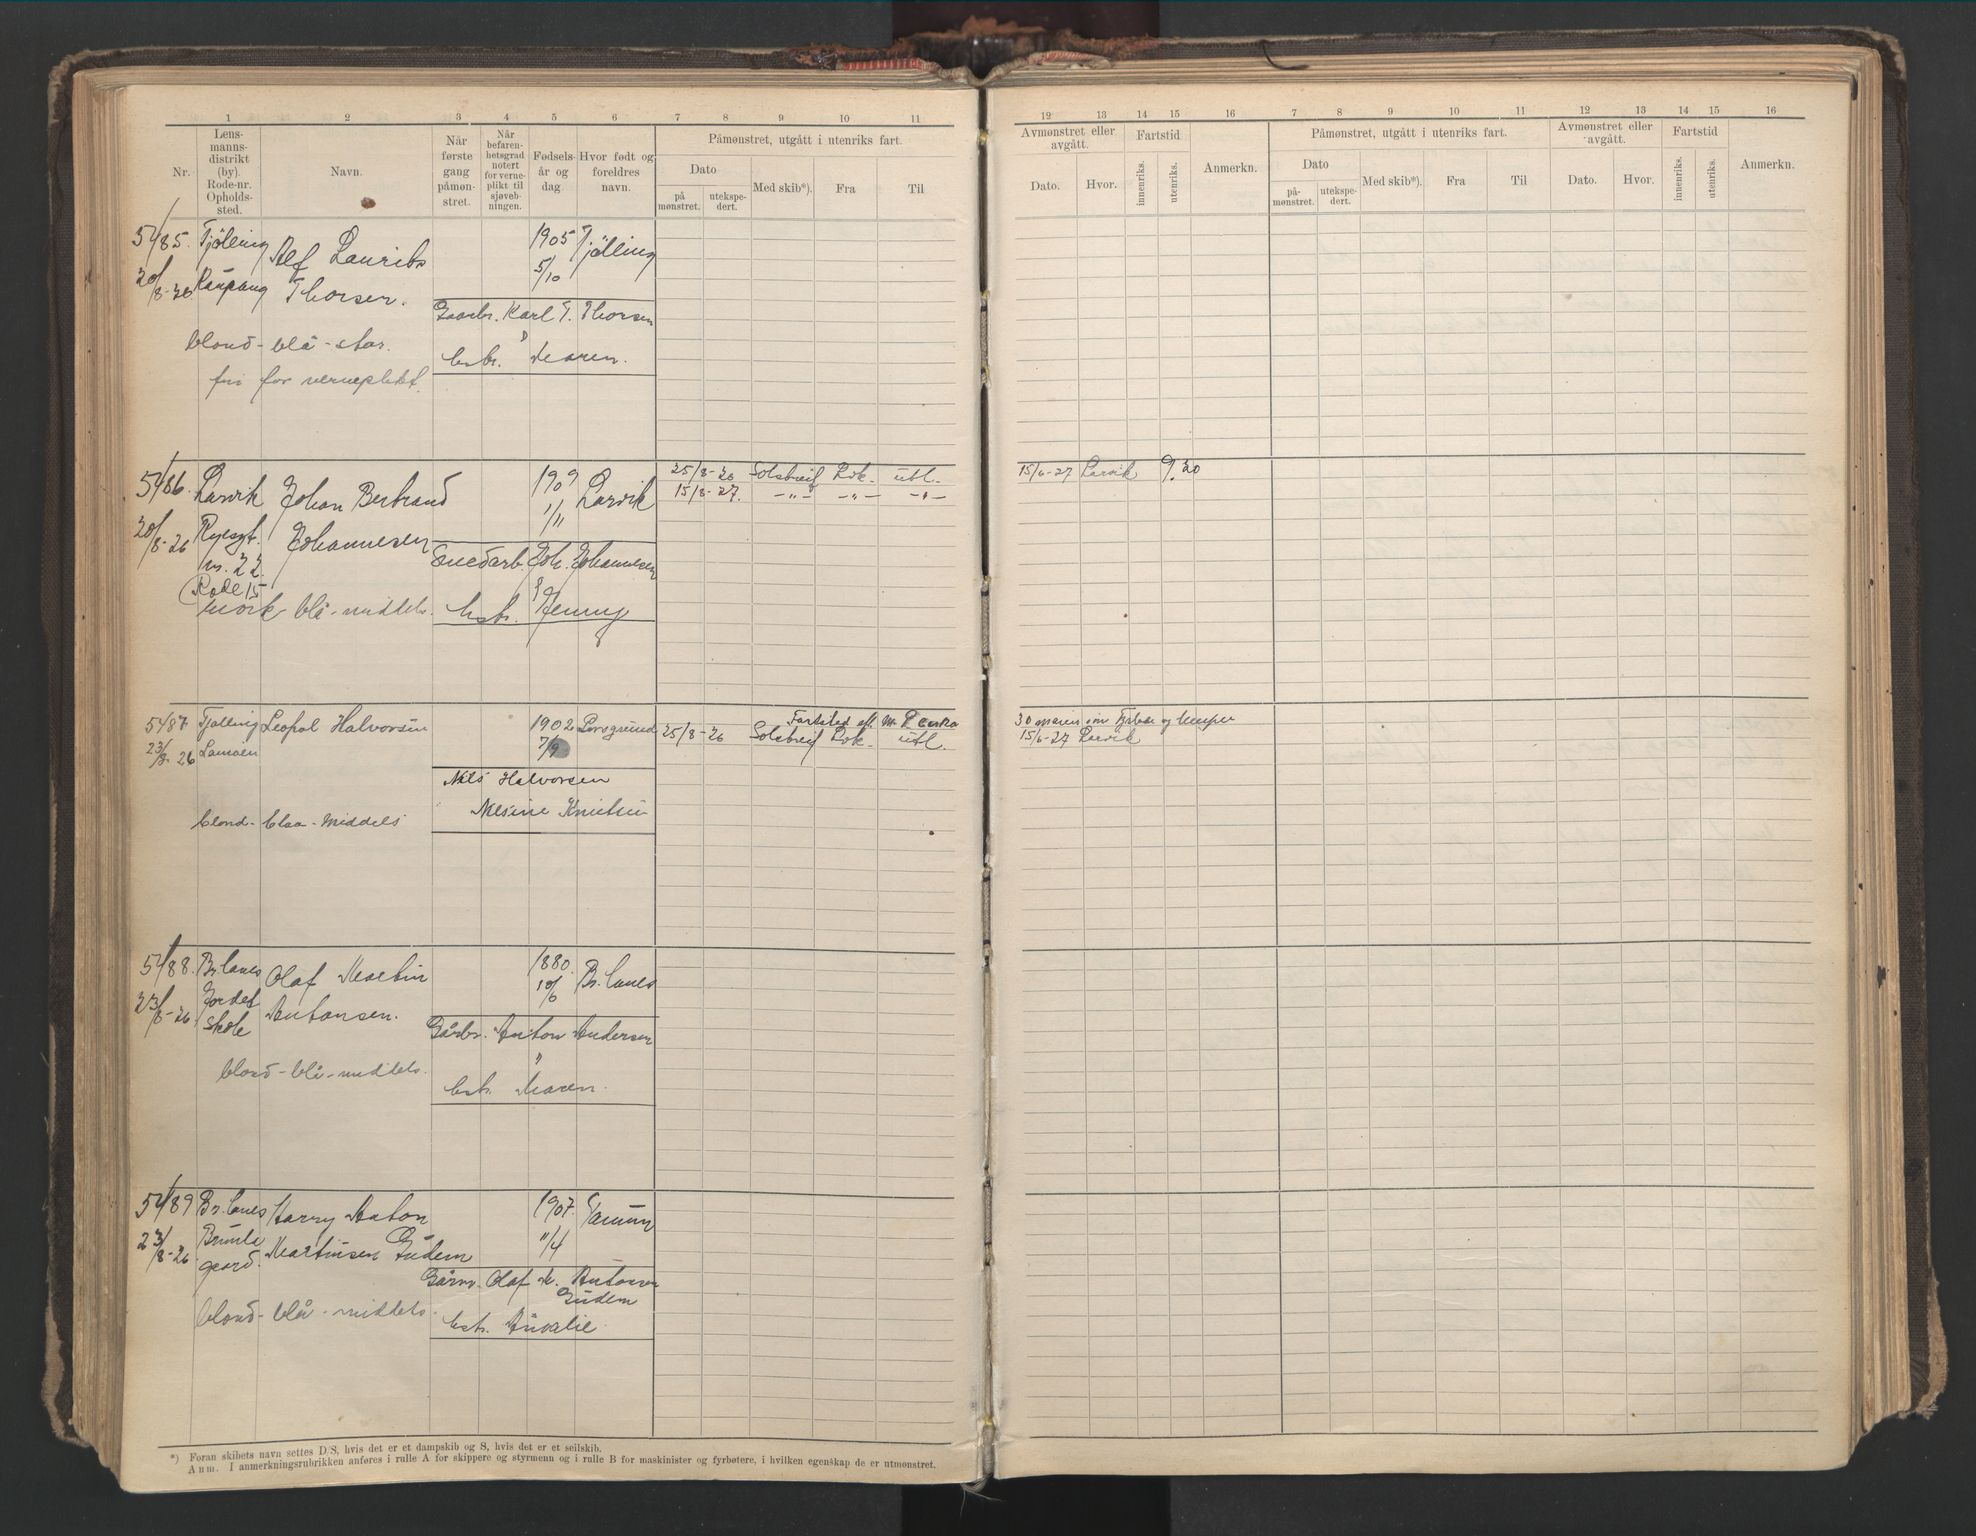 1 2 3 4 5 6 7 8 9 10 11
Nr. Lens-mannsdistrikt (by). Rode-nr. Opholds-sted. Navn. Når første gang påmøn-stret. Når befaren-hetsgrad notert for verne-plikt til sjøveb-ningen. Fødsels-år og dag. Hvor født og foreldres navn.
Påmønstret, utgått i utenriks fart.
Dato på mønstret. utekspe-dert. Med skib*). Fra Til
12 13 14 15 16 7 8 9 10 11 12 13 14 15 16
Avmønstret eller avgått. Fartstid Påmønstret, utgått i utenriks fart. Avmønstret eller avgått. Fartstid
Dato. Hvor. innenriks. utenriks. Anmerkn. Dato på-mønstret. utekspe-dert. Med skib*). Fra Til Dato. Hvor. innenriks. utenriks. Anmerkn.
5485. Tjølling Alf Laurits 1905 Tjølling
20/8-26 Kaupang Thorsen. 5/10
Gaarbr. Karl T. Thorsen
blond - blå - stor.
hstr. Maren.
fri for verneplikt.
5486. Larvik Johan Bertrand 1909 Larvik 25/8-26 Solstreif Lvk - utl. 15/6-27 Larvik 9.20
11/11 15/8-27. -"- -"- -"-
20/8-26 Ryesgt. Johannesen
nr. 22. Smedarb. Joh. Johannesen
Rode 15
mørk - blå - middels. hstr. Jenny
Fartstid eft. 30 mars om Fyrbøter og lemper
5487 Tjølling Leopol Halvorsen 1902 Porsgrund 25/8-26 Solstreif Lvk - utl. 15/6-27 Larvik
23/8-26 Lamøen 7/9
Nils Halvorsen
Nilsine Knutsen
blond - blaa - Middels
5488. Br.lanes Olaf Martin 1880. Br.lanes
10/6
23/8-26 Jordet skole Antonsen.
Gårbr. Anton Andersen
blond - blå - middels.
hstr. Maren.
5489 Br.lanes Harry Anton 1907. Tanum
23/8-26 Brunla gård. Martinsen Gudem "/4
Gårbr. Olaf M. Antonsen
Gudem
blond - blå - middels.
hstr. Amalie.
*) Foran skibets navn settes D/S, hvis det er et dampskib og S, hvis det er et seilskib.
Anm. I anmerkningsrubrikken anføres i rulle A for skippere og styrmenn og i rulle B for maskinister og fyrbøtere, i hvilken egenskap de er utmønstret.